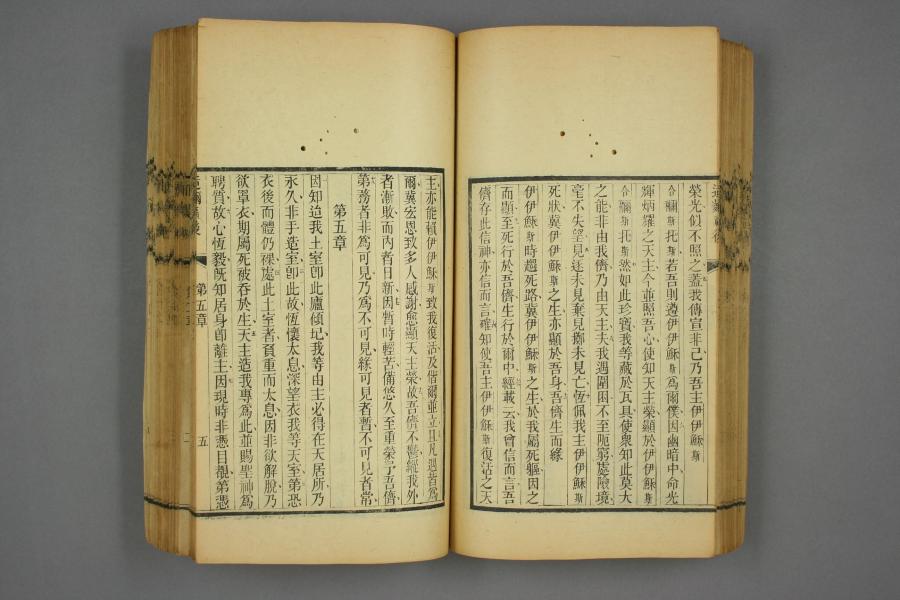 榮光似不照之蓋我傳宣非己乃吾主伊伊穌斯
合稱斯托斯若吾則遵伊伊穌斯為爾僕因幽暗中命光
輝炳耀之天主今並照吾心使知天主榮顯於伊伊穌斯
合稱斯托斯然如此珍寶我等藏於瓦具使衆知此莫大
之能非由我儕乃由天主夫我遇圍困不至阨窮處險境
毫不失望見逐未見棄見擲未見亡恆佩我主伊伊穌斯
死狀冀伊伊穌斯之生亦顯於吾身吾儕生而緣
伊伊穌斯時趨死路冀伊伊穌斯之生於我屬死軀因之
而顯至死行於吾儕生行於爾中經載云我曾信而言吾
儕存此信神亦信而言確知使吾主伊伊穌斯復活之天
主亦能賴伊伊穌斯致我復活及偕爾並立且凡遇皆為
爾冀宏恩致多人感謝愈顯天主榮故吾儕不鬱經我外
者漸敗而內者日新因暫時輕苦備悠久至重榮予吾儕
第務者非為可見乃為不可見緣可見者暫不可見者常
第五章
因知造我土室卽此廬傾圮我等由主必得在天居所乃
永久非手造室卽此故恆懷太息深望衣我等天室第恐
衣後而體仍裸處此土室者負重而太息因非欲解脫乃
欲罩衣期屬死被吞於生天主造我專為此並賜聖神為
聘質故心恆毅旣知居身卽離主因現時非憑目覩第憑
第五章
五